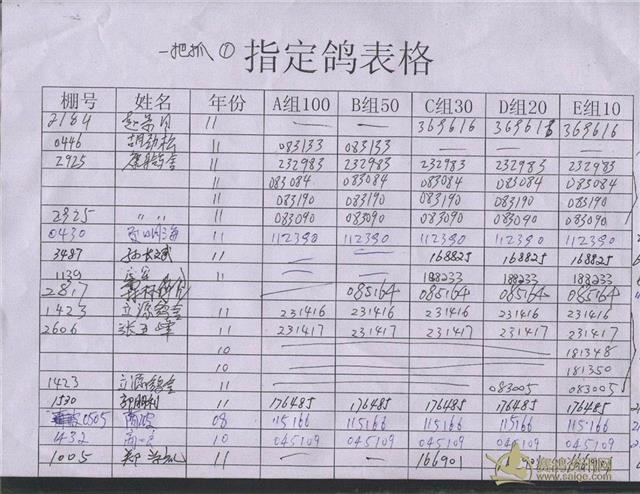 一把抓 ① 指定鸽表格
棚号 姓名 年份 A组100 B组50 C组30 D组20 E组10
2184 11 — — 369616 369616 369616
0446 胡劲松 11 083133 083133 — — —
2925 11 232983 232983 232983 232983 232983
11 083084 083084 083084 083084 083084
11 083190 083190 083190 083190 083190
2925 〃 〃 11 083090 083090 083090 083090 083090
0430 11 112390 112390 112390 112390 112390
3487 11 — — 168825 168825 168825
1139 11 — — 188233 188233 188233
2817 — 085164 085164 085164 085164
1423 立源鸽舍 11 231416 231416 231416 231416 231416
2606 张玉峰 11 231417 231417 231417 231417 231417
10 — — — — 181348
10 — — — — 181350
1423 立源鸽舍 11 — — — 083005 083005
1530 郭朋利 11 176485 176485 176485 176485 176485
0505 08 115166 115166 115166 115166 115166
1432 10 045109 045109 045109 045109 045109
1005 11 — — 166901
www.saige.com